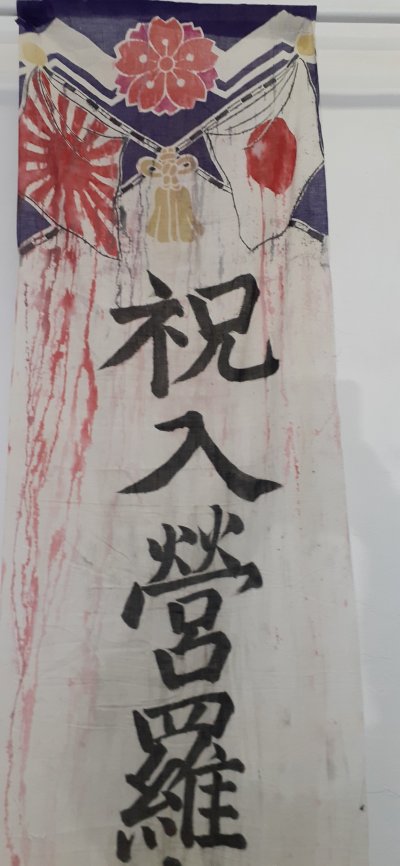 祝入營羅